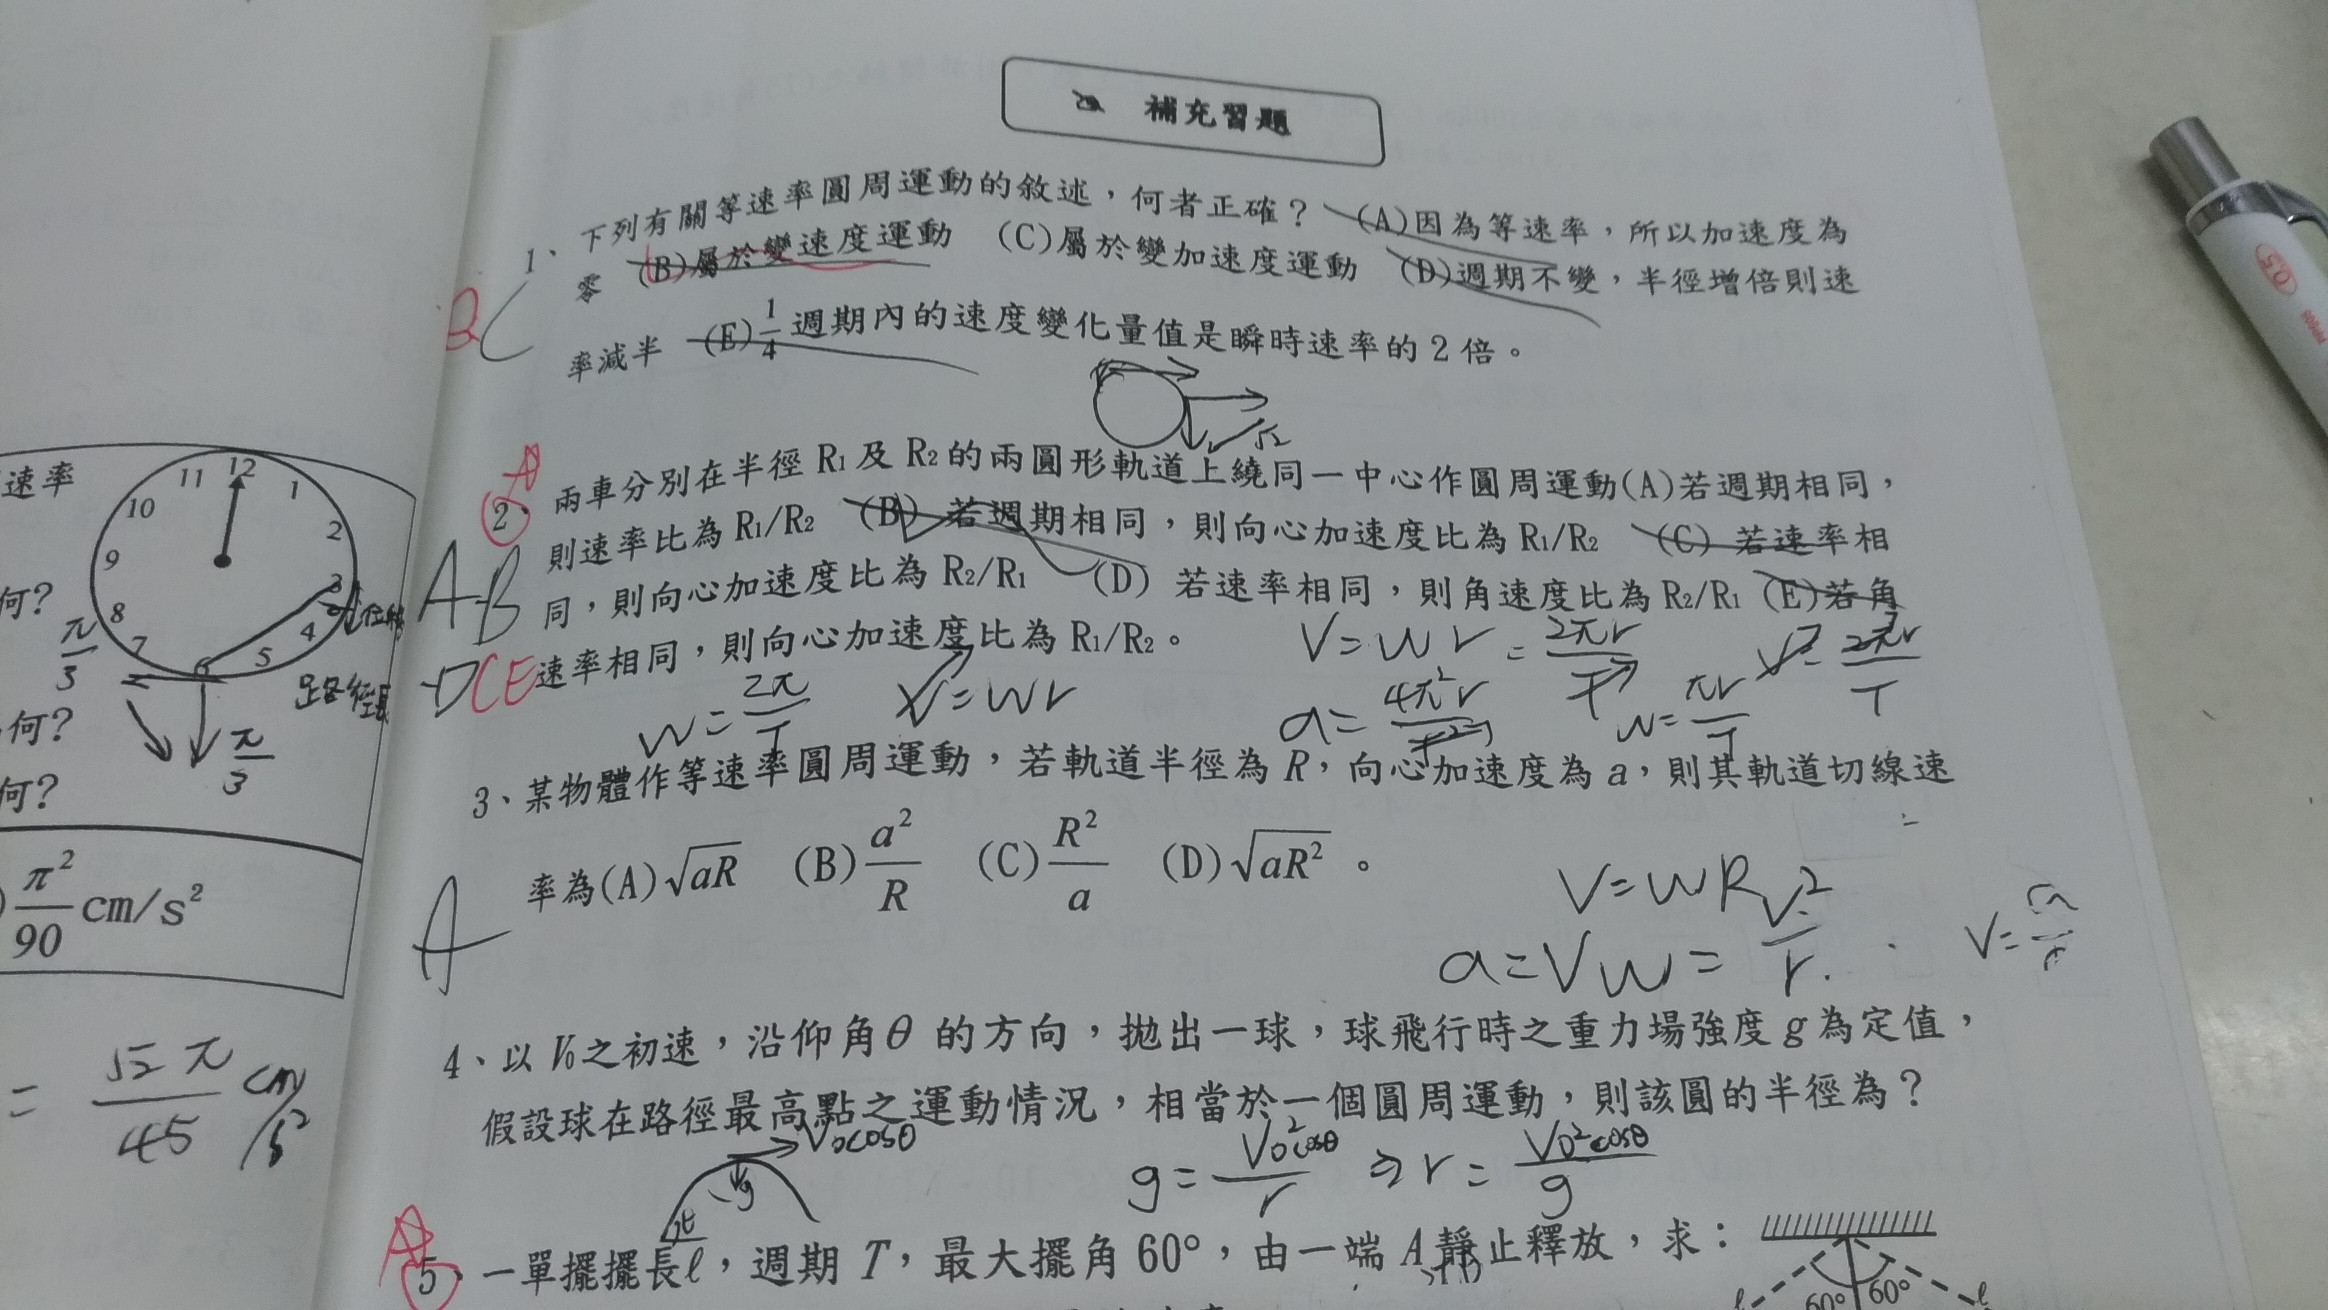 補充習題
1、下列有關等速率圓周運動的敘述，何者正確？ (A)因為等速率，所以加速度為
零 (B)屬於變速度運動 (C)屬於變加速度運動 (D)週期不變，半徑增倍則速
BC
率減半 (E)1/4週期內的速度變化量值是瞬時速率的2倍。
√2
2、兩車分別在半徑R1及R2的兩圓形軌道上繞同一中心作圓周運動(A)若週期相同，
則速率比為R1/R2 (B) 若週期相同，則向心加速度比為R1/R2 (C) 若速率相
AB
同，則向心加速度比為R2/R1 (D) 若速率相同，則角速度比為R2/R1 (E)若角
DCE
速率相同，則向心加速度比為R1/R2。
V=Wr=2πr/T
W=2π/T V=Wr a=4π²r/T²
3、某物體作等速率圓周運動，若軌道半徑為R，向心加速度為a，則其軌道切線速
率為(A)√aR (B)a²/R (C)R²/a (D)√aR²。
A
V=WR
a=VW=V²/r
4、以V0之初速，沿仰角θ的方向，拋出一球，球飛行時之重力場強度g為定值，
假設球在路徑最高點之運動情況，相當於一個圓周運動，則該圓的半徑為？
V0cosθ
g
g=V0²cosθ/r ⇒r=V0²cosθ/g
5、一單擺擺長ℓ，週期T，最大擺角60°，由一端A靜止釋放，求：
60° 60°
ℓ ℓ
速率
12 1 2 3 4 5 6 7 8 9 10 11
何？
π/3
位移
路徑長
何？
π/3
何？
π²/90 cm/s²
=√2π/45 cm/s²
0.5